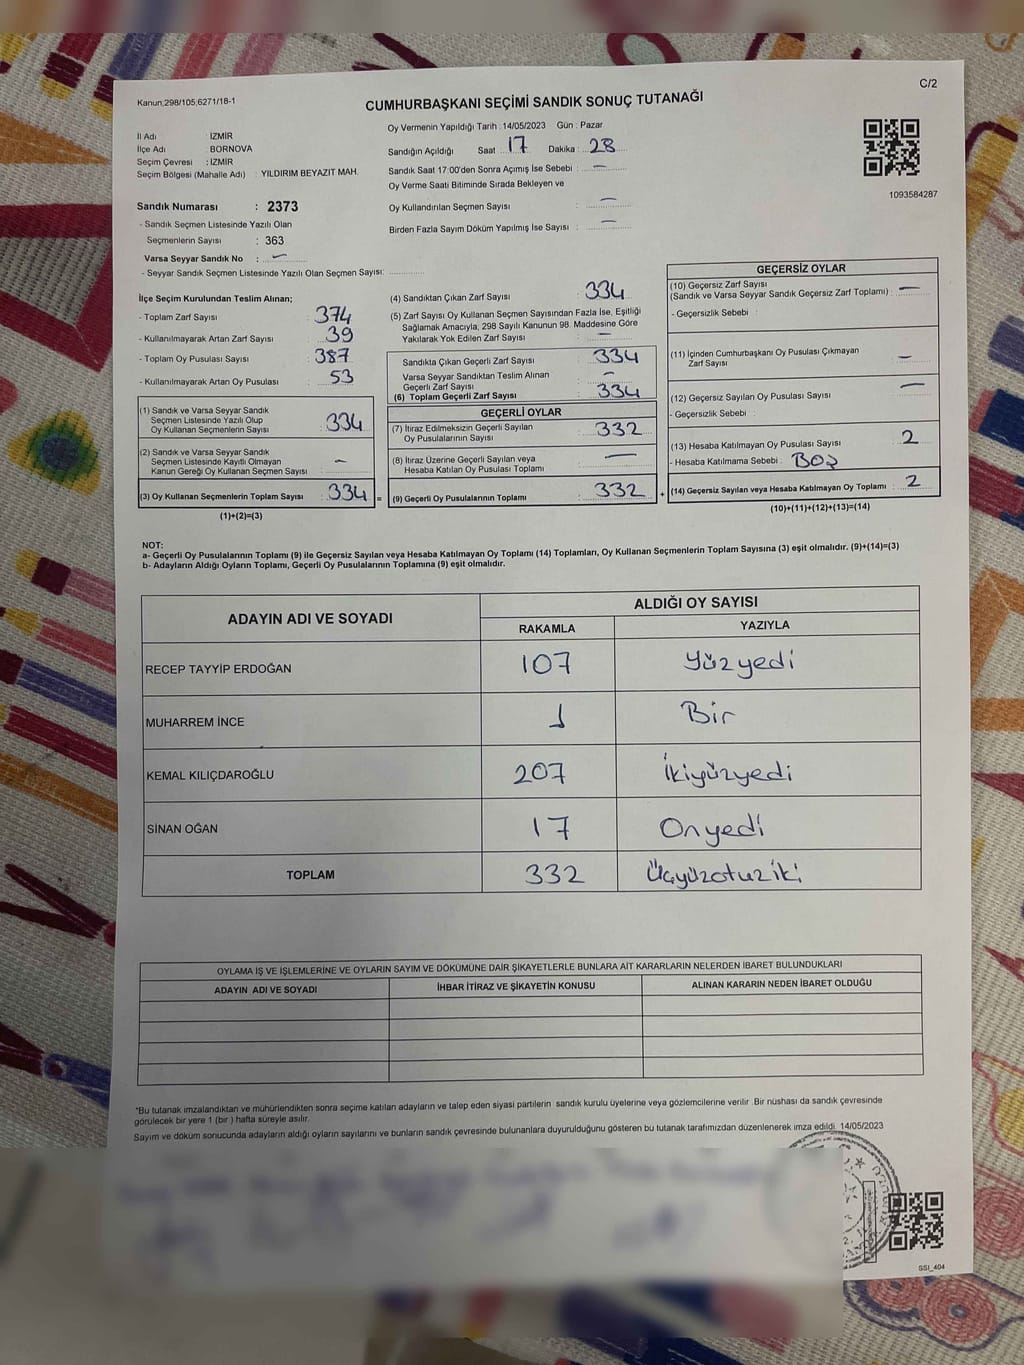 Kanun;298/105;6271/18-1
C/2
CUMHURBAŞKANI SEÇİMİ SANDIK SONUÇ TUTANAĞI
İl Adı : İZMİR
İlçe Adı : BORNOVA
Seçim Çevresi : İZMİR
Seçim Bölgesi (Mahalle Adı) : YILDIRIM BEYAZIT MAH.
Sandık Numarası : 2373
- Sandık Seçmen Listesinde Yazılı Olan
Seçmenlerin Sayısı : 363
Varsa Seyyar Sandık No : —
- Seyyar Sandık Seçmen Listesinde Yazılı Olan Seçmen Sayısı:
Oy Vermenin Yapıldığı Tarih : 14/05/2023 Gün : Pazar
Sandığın Açıldığı Saat : 17 Dakika : 28
Sandık Saat 17:00'den Sonra Açımış İse Sebebi : —
Oy Verme Saati Bitiminde Sırada Bekleyen ve
Oy Kullandırılan Seçmen Sayısı : —
Birden Fazla Sayım Döküm Yapılmış İse Sayısı : —
1093584287
İlçe Seçim Kurulundan Teslim Alınan;
- Toplam Zarf Sayısı : 374
- Kullanılmayarak Artan Zarf Sayısı : 39
- Toplam Oy Pusulası Sayısı : 387
- Kullanılmayarak Artan Oy Pusulası : 53
(1) Sandık ve Varsa Seyyar Sandık
Seçmen Listesinde Yazılı Olup
Oy Kullanan Seçmenlerin Sayısı : 334
(2) Sandık ve Varsa Seyyar Sandık
Seçmen Listesinde Kayıtlı Olmayan
Kanun Gereği Oy Kullanan Seçmen Sayısı : —
(3) Oy Kullanan Seçmenlerin Toplam Sayısı : 334 =
(1)+(2)=(3)
(4) Sandıktan Çıkan Zarf Sayısı : 334
(5) Zarf Sayısı Oy Kullanan Seçmen Sayısından Fazla İse, Eşitliği
Sağlamak Amacıyla, 298 Sayılı Kanunun 98. Maddesine Göre
Yakılarak Yok Edilen Zarf Sayısı : —
Sandıkta Çıkan Geçerli Zarf Sayısı : 334
Varsa Seyyar Sandıktan Teslim Alınan
Geçerli Zarf Sayısı : —
(6) Toplam Geçerli Zarf Sayısı : 334
GEÇERLİ OYLAR
(7) İtiraz Edilmeksizin Geçerli Sayılan
Oy Pusulalarının Sayısı : 332
(8) İtiraz Üzerine Geçerli Sayılan veya
Hesaba Katılan Oy Pusulası Toplamı : —
(9) Geçerli Oy Pusulalarının Toplamı : 332 +
GEÇERSİZ OYLAR
(10) Geçersiz Zarf Sayısı
(Sandık ve Varsa Seyyar Sandık Geçersiz Zarf Toplamı) : —
- Geçersizlik Sebebi :
(11) İçinden Cumhurbaşkanı Oy Pusulası Çıkmayan
Zarf Sayısı : —
(12) Geçersiz Sayılan Oy Pusulası Sayısı : —
- Geçersizlik Sebebi :
(13) Hesaba Katılmayan Oy Pusulası Sayısı : 2
- Hesaba Katılmama Sebebi : BOŞ
(14) Geçersiz Sayılan veya Hesaba Katılmayan Oy Toplamı : 2
(10)+(11)+(12)+(13)=(14)
NOT:
a- Geçerli Oy Pusulalarının Toplamı (9) ile Geçersiz Sayılan veya Hesaba Katılmayan Oy Toplamı (14) Toplamları, Oy Kullanan Seçmenlerin Toplam Sayısına (3) eşit olmalıdır. (9)+(14)=(3)
b- Adayların Aldığı Oyların Toplamı, Geçerli Oy Pusulalarının Toplamına (9) eşit olmalıdır.
ADAYIN ADI VE SOYADI ALDIĞI OY SAYISI
RAKAMLA YAZIYLA
RECEP TAYYİP ERDOĞAN 107 Yüzyedi
MUHARREM İNCE 1 Bir
KEMAL KILIÇDAROĞLU 207 İkiyüzyedi
SİNAN OĞAN 17 Onyedi
TOPLAM 332 Üçyüzotuziki
OYLAMA İŞ VE İŞLEMLERİNE VE OYLARIN SAYIM VE DÖKÜMÜNE DAİR ŞİKAYETLERLE BUNLARA AİT KARARLARIN NELERDEN İBARET BULUNDUKLARI
ADAYIN ADI VE SOYADI İHBAR İTİRAZ VE ŞİKAYETİN KONUSU ALINAN KARARIN NEDEN İBARET OLDUĞU
*Bu tutanak imzalandıktan ve mühürlendikten sonra seçime katılan adayların ve talep eden siyasi partilerin sandık kurulu üyelerine veya gözlemcilerine verilir .Bir nüshası da sandık çevresinde
görülecek bir yere 1 (bir ) hafta süreyle asılır.
Sayım ve döküm sonucunda adayların aldığı oyların sayılarını ve bunların sandık çevresinde bulunanlara duyurulduğunu gösteren bu tutanak tarafımızdan düzenlenerek imza edildi. 14/05/2023
SSI_404